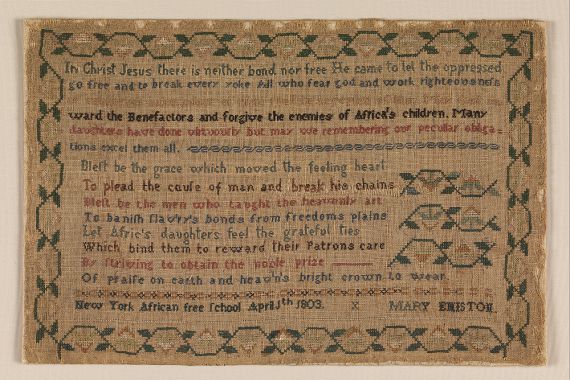 In Christ Jesus there is neither bond nor free He came to let the oppressed
go free and to break every yoke All who fear god and work righteousness
ward the Benefactors and forgive the enemies of Affica's children. Many
daughters have done virtuously but may we remembering our peculiar obliga=
tions excel them all.
Blest be the grace which moved the feeling heart
To plead the cause of man and break his chains
Blest be the men who taught the heavenly art
To banish slav'ry's bonds from freedoms plains
Let Afric's daughters feel the grateful ties
Which bind them to reward their Patrons care
By striving to obtain the noble prize
Of praise on earth and heav'n's bright crown to wear
New York African free School April 1th 1803. x MARY EMISTON.